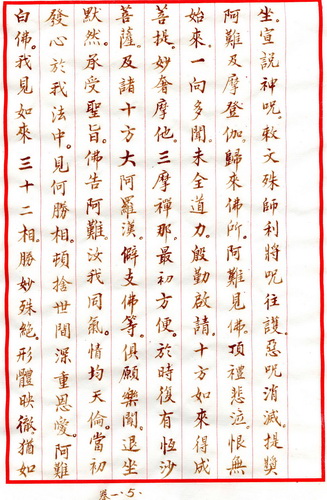 坐。宣說神咒。敕文殊師利將咒往護。惡咒消滅。提獎
阿難及摩登伽。歸來佛所。阿難見佛。頂禮悲泣。恨無
始來。一向多聞。未全道力。殷勤啟請。十方如來得成
菩提。妙奢摩他。三摩禪那。最初方便。於時復有恆沙
菩薩。及諸十方大阿羅漢。僻支佛等。俱願樂聞。退坐
默然。承受聖旨。佛告阿難。汝我同氣。情均天倫。當初
發心。於我法中。見何勝相。頓捨世間深重恩愛。阿難
白佛。我見如來三十二相。勝妙殊絕。形體映徹猶如
卷一.5.